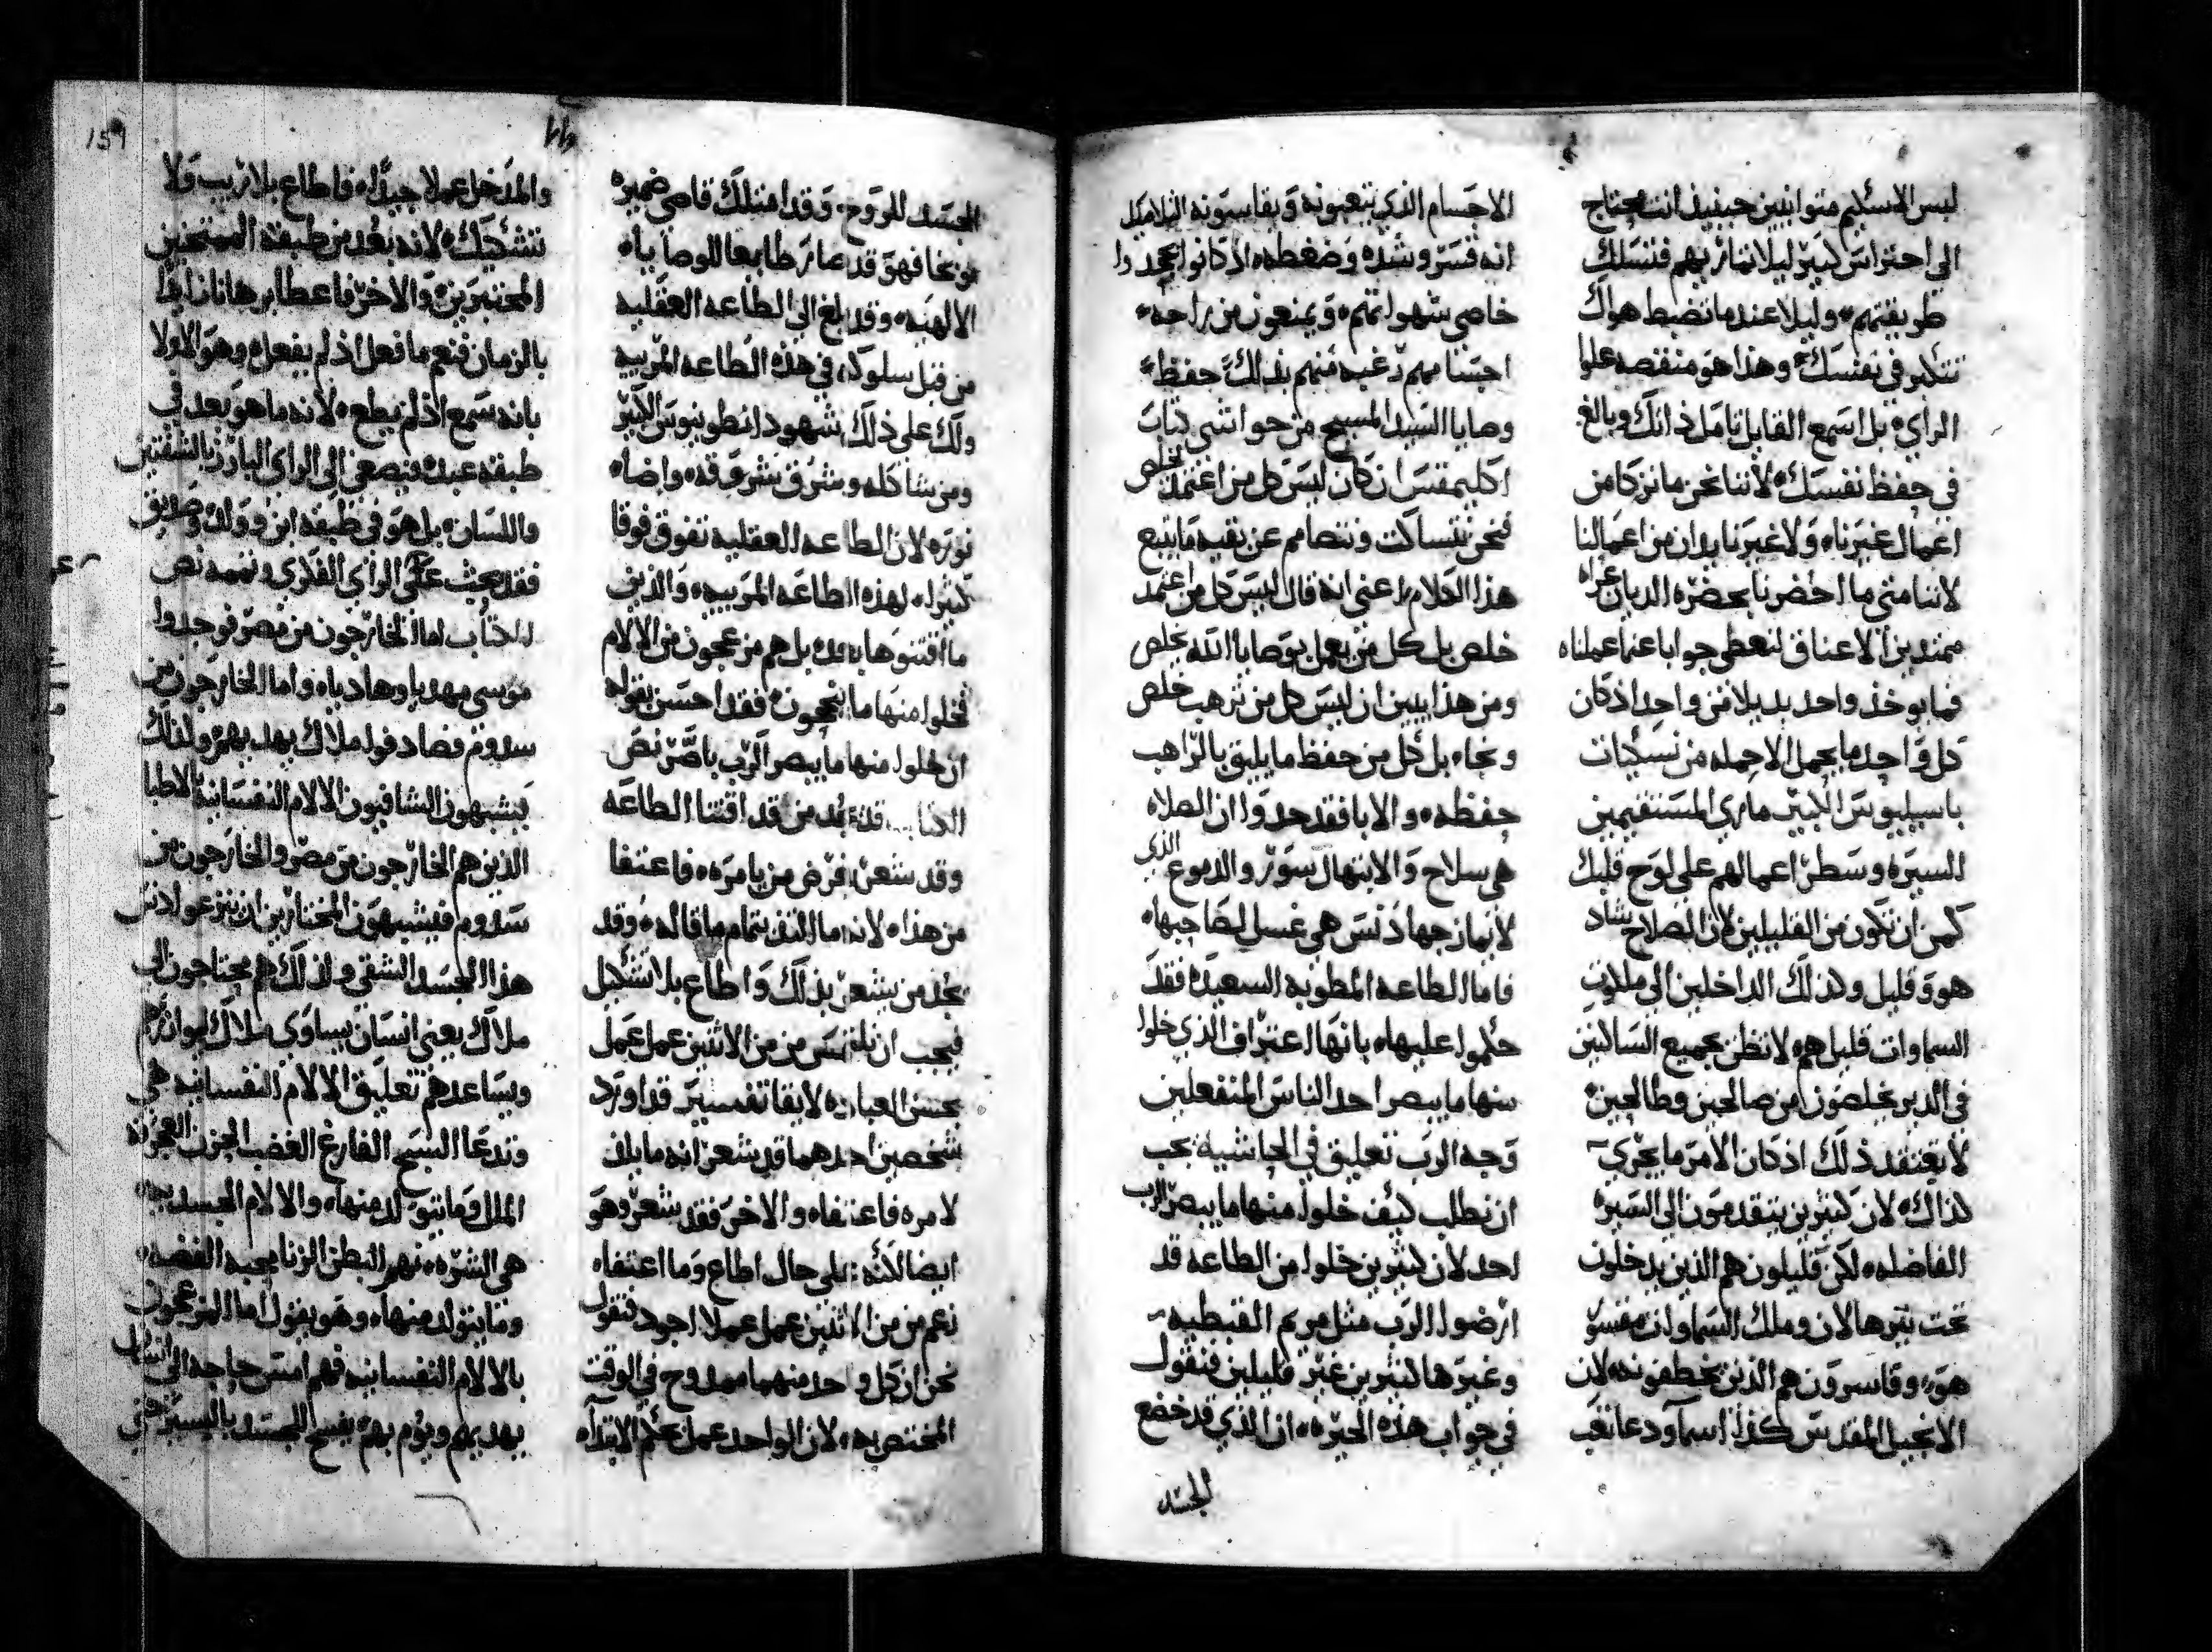 ليس الاسكيم متوانيين حينيذ انت محتاج
الى احتراس كبير ليلا تماثر بهم فتسلك
طريقتهم، وليلا عندما تضبط هواك
تتكبر في نفسك، وهذا هو منقصه علوا
الراي، بل اسمع القايل تامل ذاتك وبالغ
في حفظ نفسك، لاننا نحن ما نزكا من
اعمال غيرنا، ولا غيرنا يدان من اعمالنا
لاننا متى ما احضرنا بحضره الديان عراه
ممتدين الاعناق لنعطي جوابا عنما عملناه
فما يوخذ واحد بديلا من واحد اذ كان
كل واحد ما يحمل الا حمله من نسكيات
باسيليوس الكبير ماري المستقيمين
السيره وسطر اعمالهم على لوح قلبك
كمن ان تكون من القليلين لان الصلاح شاد
هو وقليل ولذلك الداخلين الى ملكوت
السماوات قليل هم، لا تظن بجميع الساكنين
في الدير يخلصون من صالحين وطالحين،
لا تعتقد ذلك اذ كان الامر ما يجري
كذاك، لان كثيرين يتقدمون الى السيره
الفاضله، لكن قليلون هم الذين يدخلون
تحت نيرها لان وملك السماوات مقسو
هو، وقاسرون هم الذين يخطفونه، لان
الانجيل المقدس كذا اسما ودعا تعب
الاجسام الذي يتعبونه ويقاسونه التلاميذ
انه قسر وشده وضغطه، اذ كانوا يجحدوا
خاصي شهواتهم، ويمنعون من راحة،
اجسامهم رغبه منهم بذلك حفظ
وصايا السيد المسيح من حواشي كتاب
اكليمقس ان كان ليس كل من اعتمد يخلص
فنحن نتساكت ونتصامم عن بقيه ما يتبع
هذا الكلام، اعني انه قال ليس كل من اعتمد
خلص بل كل من يعمل بوصايا الله يخلص
ومن هذا يبين ان ليس كل من ترهب خلص
ونجاه بل كل من حفظ ما يليق بالراهب
حفظه، والابا فقد حدوا ان الصلاه
هي سلاح والابتهال سور والدموع الذي
لانهاز جهاد نس هي غسل لصاحبها،
فاما الطاعه المطوبه السعيده فقد
حكموا عليها، بانها اعتراف الذي خلوا
منها ما يبصر احد الناس المنفعلين
وجه الرب تعليق في الحاشيه يجب
ان نطلب كيف خلوا منها ما يبصر الرب
احد لان كثيرين خلوا من الطاعه قد
ارضوا الرب مثل مريم القبطيه
وغيرها كثيرين غير قليلين فنقول
في جواب هذه الحيره، ان الذي قد خضع
الجسد
159
الجسد للروح، وقد امتلك قاصي ضميره
موبخا فهو قد صار طايعا للوصايا،
الالهيه، وقد بلغ الى الطاعه العقليه
من قبل سلوكه، في هذه الطاعه المرييه
ولك على ذلك شهود انطونيوس الكبير
ومن شاكله وشرق بشروقه، واضا،
نوره لان الطاعه العقليه تفوق فوقا
كثيرا، لهذه الطاعه المرييه، والذين
ما اقتنوها بل هم مزعجون من الالام
فخلوا منها ما ينجحون، فقد احسن بقوله
ان خلوا منها ما يبصر الرب باصر نص
الكتاب قد نجد من قد اقتنا الطاعه
وقد شعر بفرض من يامره، فاعتفا
من هذا، لانه ما التف بتمام ما قاله، وقد
نجد من يشعر بذلك واطاع بلا تشكيل
فيجب ان نلتمس من من الاثنين عمل عمل
بحسن العباده لايقا تفسير قد اورد
شخصين احدهما قد شعر انه ما يلف
لامره فاعتفاه والاخر فقد شعر وهو
ايضا لكنه على حال اطاع وما اعتفاه
نعم من من الاثنين عمل عملا اجود فنقول
نحن ان كل واحد منهما ممدوح في الوقت
المختص به، لان الواحد عمل علم الابتداء
والمدخل عملا جيدا، فاطاع بلا ريب ولا
تشكيك، لانه بعد من طبقة الممتحنين
المختبرين، والاخر فاعطا برهانا زايدا
بالزمان فنعم ما فعل اذ لم يفعل، وهو الاولا
بانه سمع اذ لم يطع، لانه ما هو بعد في
طبقه عبد، فيصغي الى الراي البارز بالشفتين
واللسان، بل هو في طبقه ابن وولد وصديق
فقد بحث على الراي الفكري وتممه نص
الكتاب اما الخارجون من مصر فوجدوا
موسى مهديا وهاديا، واما الخارجون من
سدوم فصادفوا ملاك يهديهم، ولذلك
يشبهون الشافيون الالام النفسانيه بالاطبا
الذين هم الخارجون من مصر والخارجون من
سدوم فيشبهون المختارين ان ينزعوا دنس
هذا الجسد الشقي ولذلك هم محتاجون الى
ملاك يعني انسان يساوي ملاك ليوازرهم
ويساعدهم تعليق الالام النفسانيه هي
وتدعا السبح الفارغ الغضب الحزن العجرفه
الملل وما يتولد منها، والالام الجسديه
هي الشره، نهم البطن الزنا محبه الفضه،
وما يتولد منها، وهو يقول اما المزعجون
بالالام النفسانيه فهم امس حاجه الى انسان
يهديهم ويوم بهم